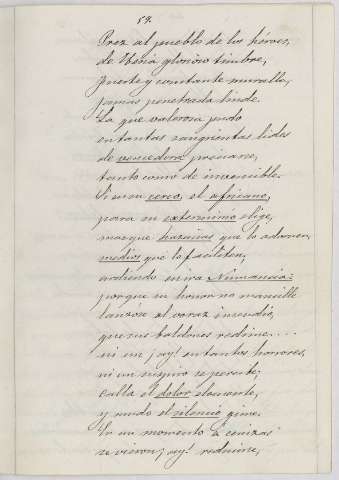 54.
Prez al pueblo de los héroes,
de Iberia glorioso timbre,
fuerte y constante muralla,
jamas penetrada linde.
La que valerosa pudo
en tantas sangrientas lides
de vencedora preciarse,
tanto como de invencible.
Si en su cerco, el africano,
para su exterminio elige,
mas que hazañas que lo adornen,
medios que lo faciliten;
ardiendo en ira Numancia:
porque su honor no mancille
lanzóse al voraz incendio,
que sus baldones redime....
ni un ¡ay! en tantos horrores,
ni un suspiro se percibe;
calla el dolor elocuente,
y mudo el silencio gime.
En un momento á cenizas
se vieron ¡ay! reducirse,